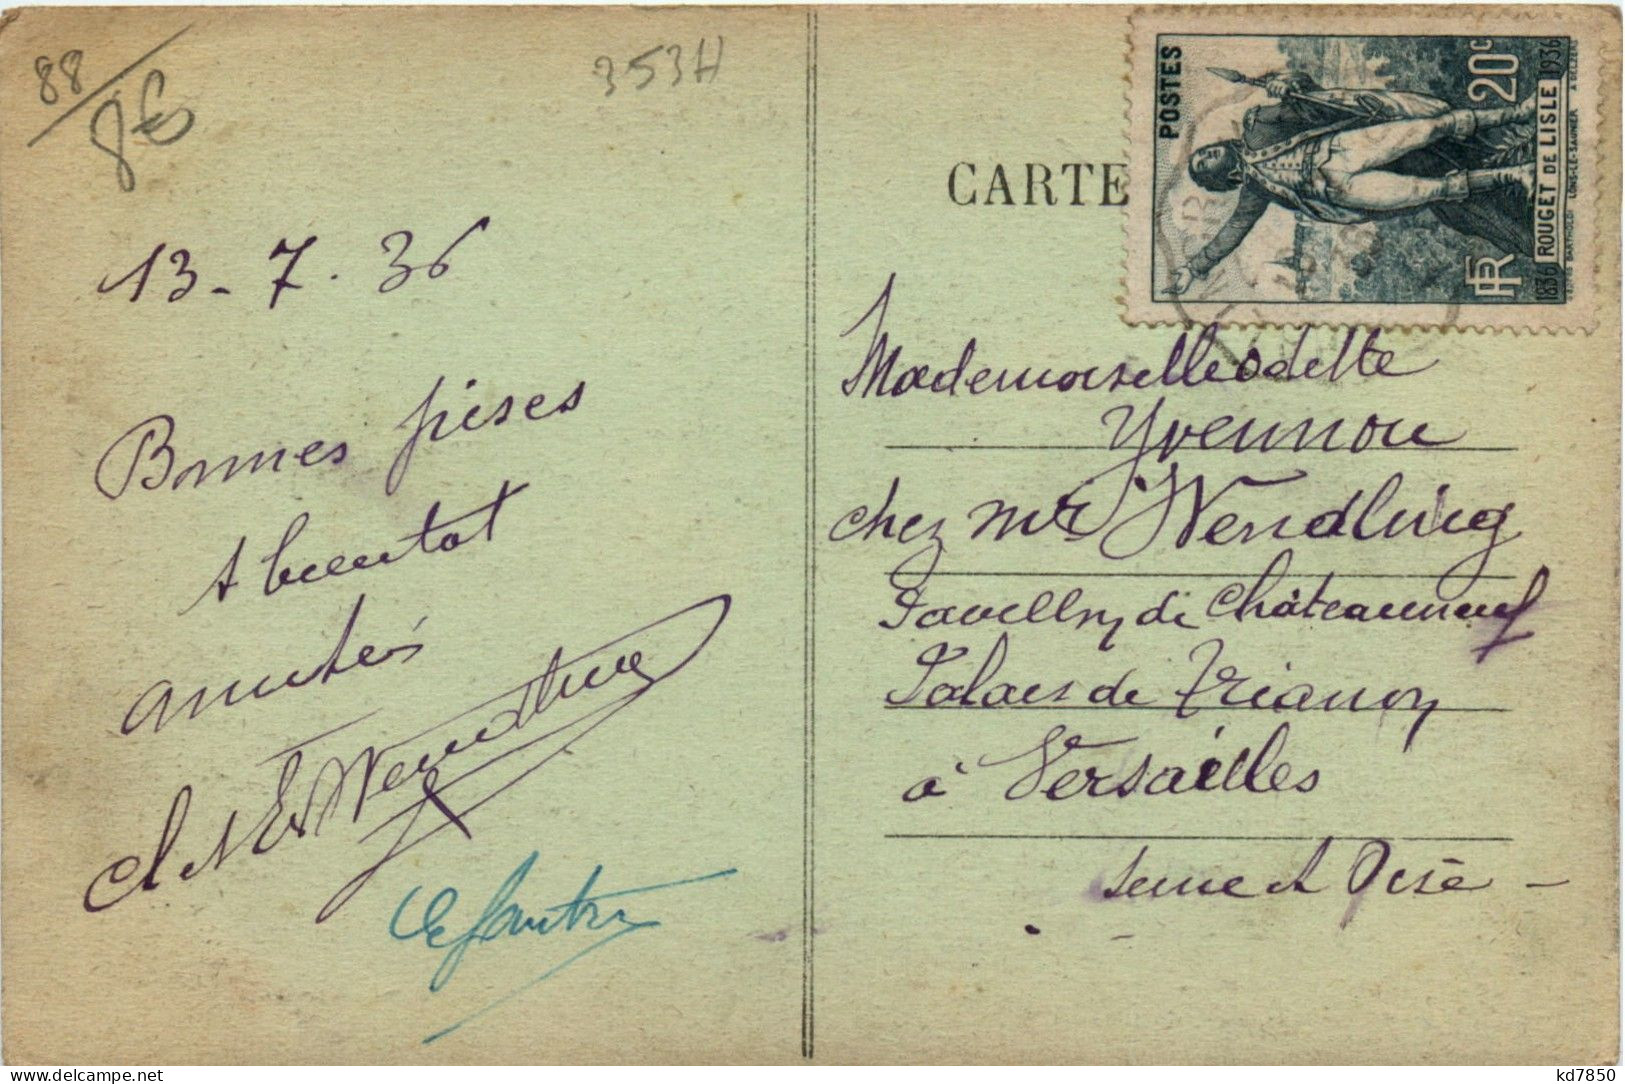 88
8€
353H
13 - 7 . 36
Bonnes fêtes
A bientot
amitiés
Wendling
CARTE
POSTES
20c
RF
1836 ROUGET DE LISLE 1936
Mademoiselle Odette
Yvennou
chez Mr Wendling
Pavillon de Châteauneuf
Palais de Trianon
à Versailles
Seine et Oise -
kd7850